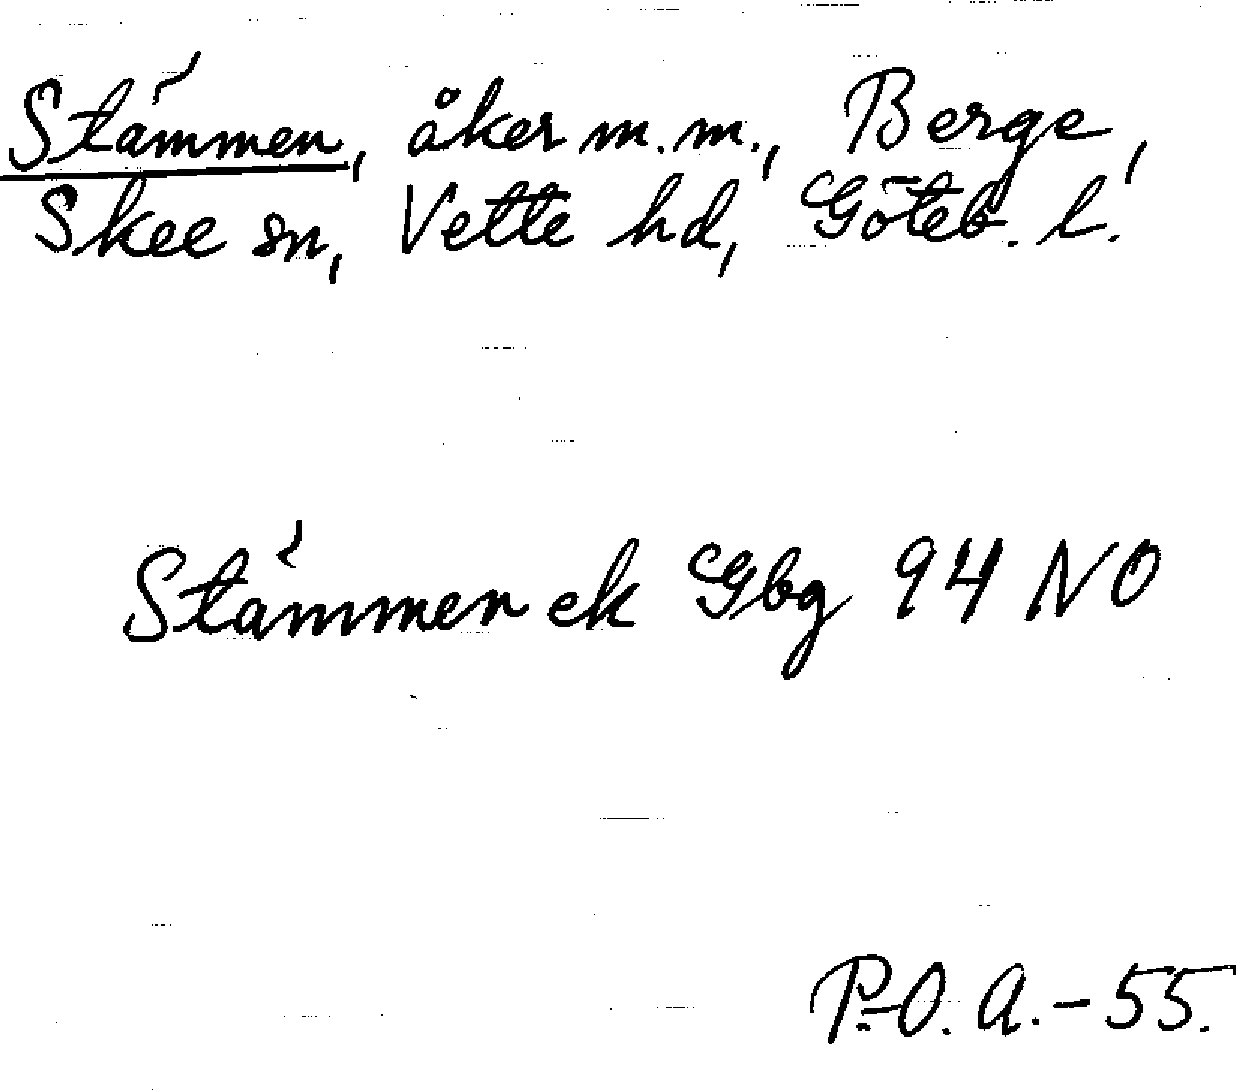 Stämmen, åker m.m., Berge,
Skee sn, Vette hd, Göteb. l.
Stämmen ek Gbg 94 NO
P.-O. A.-55.